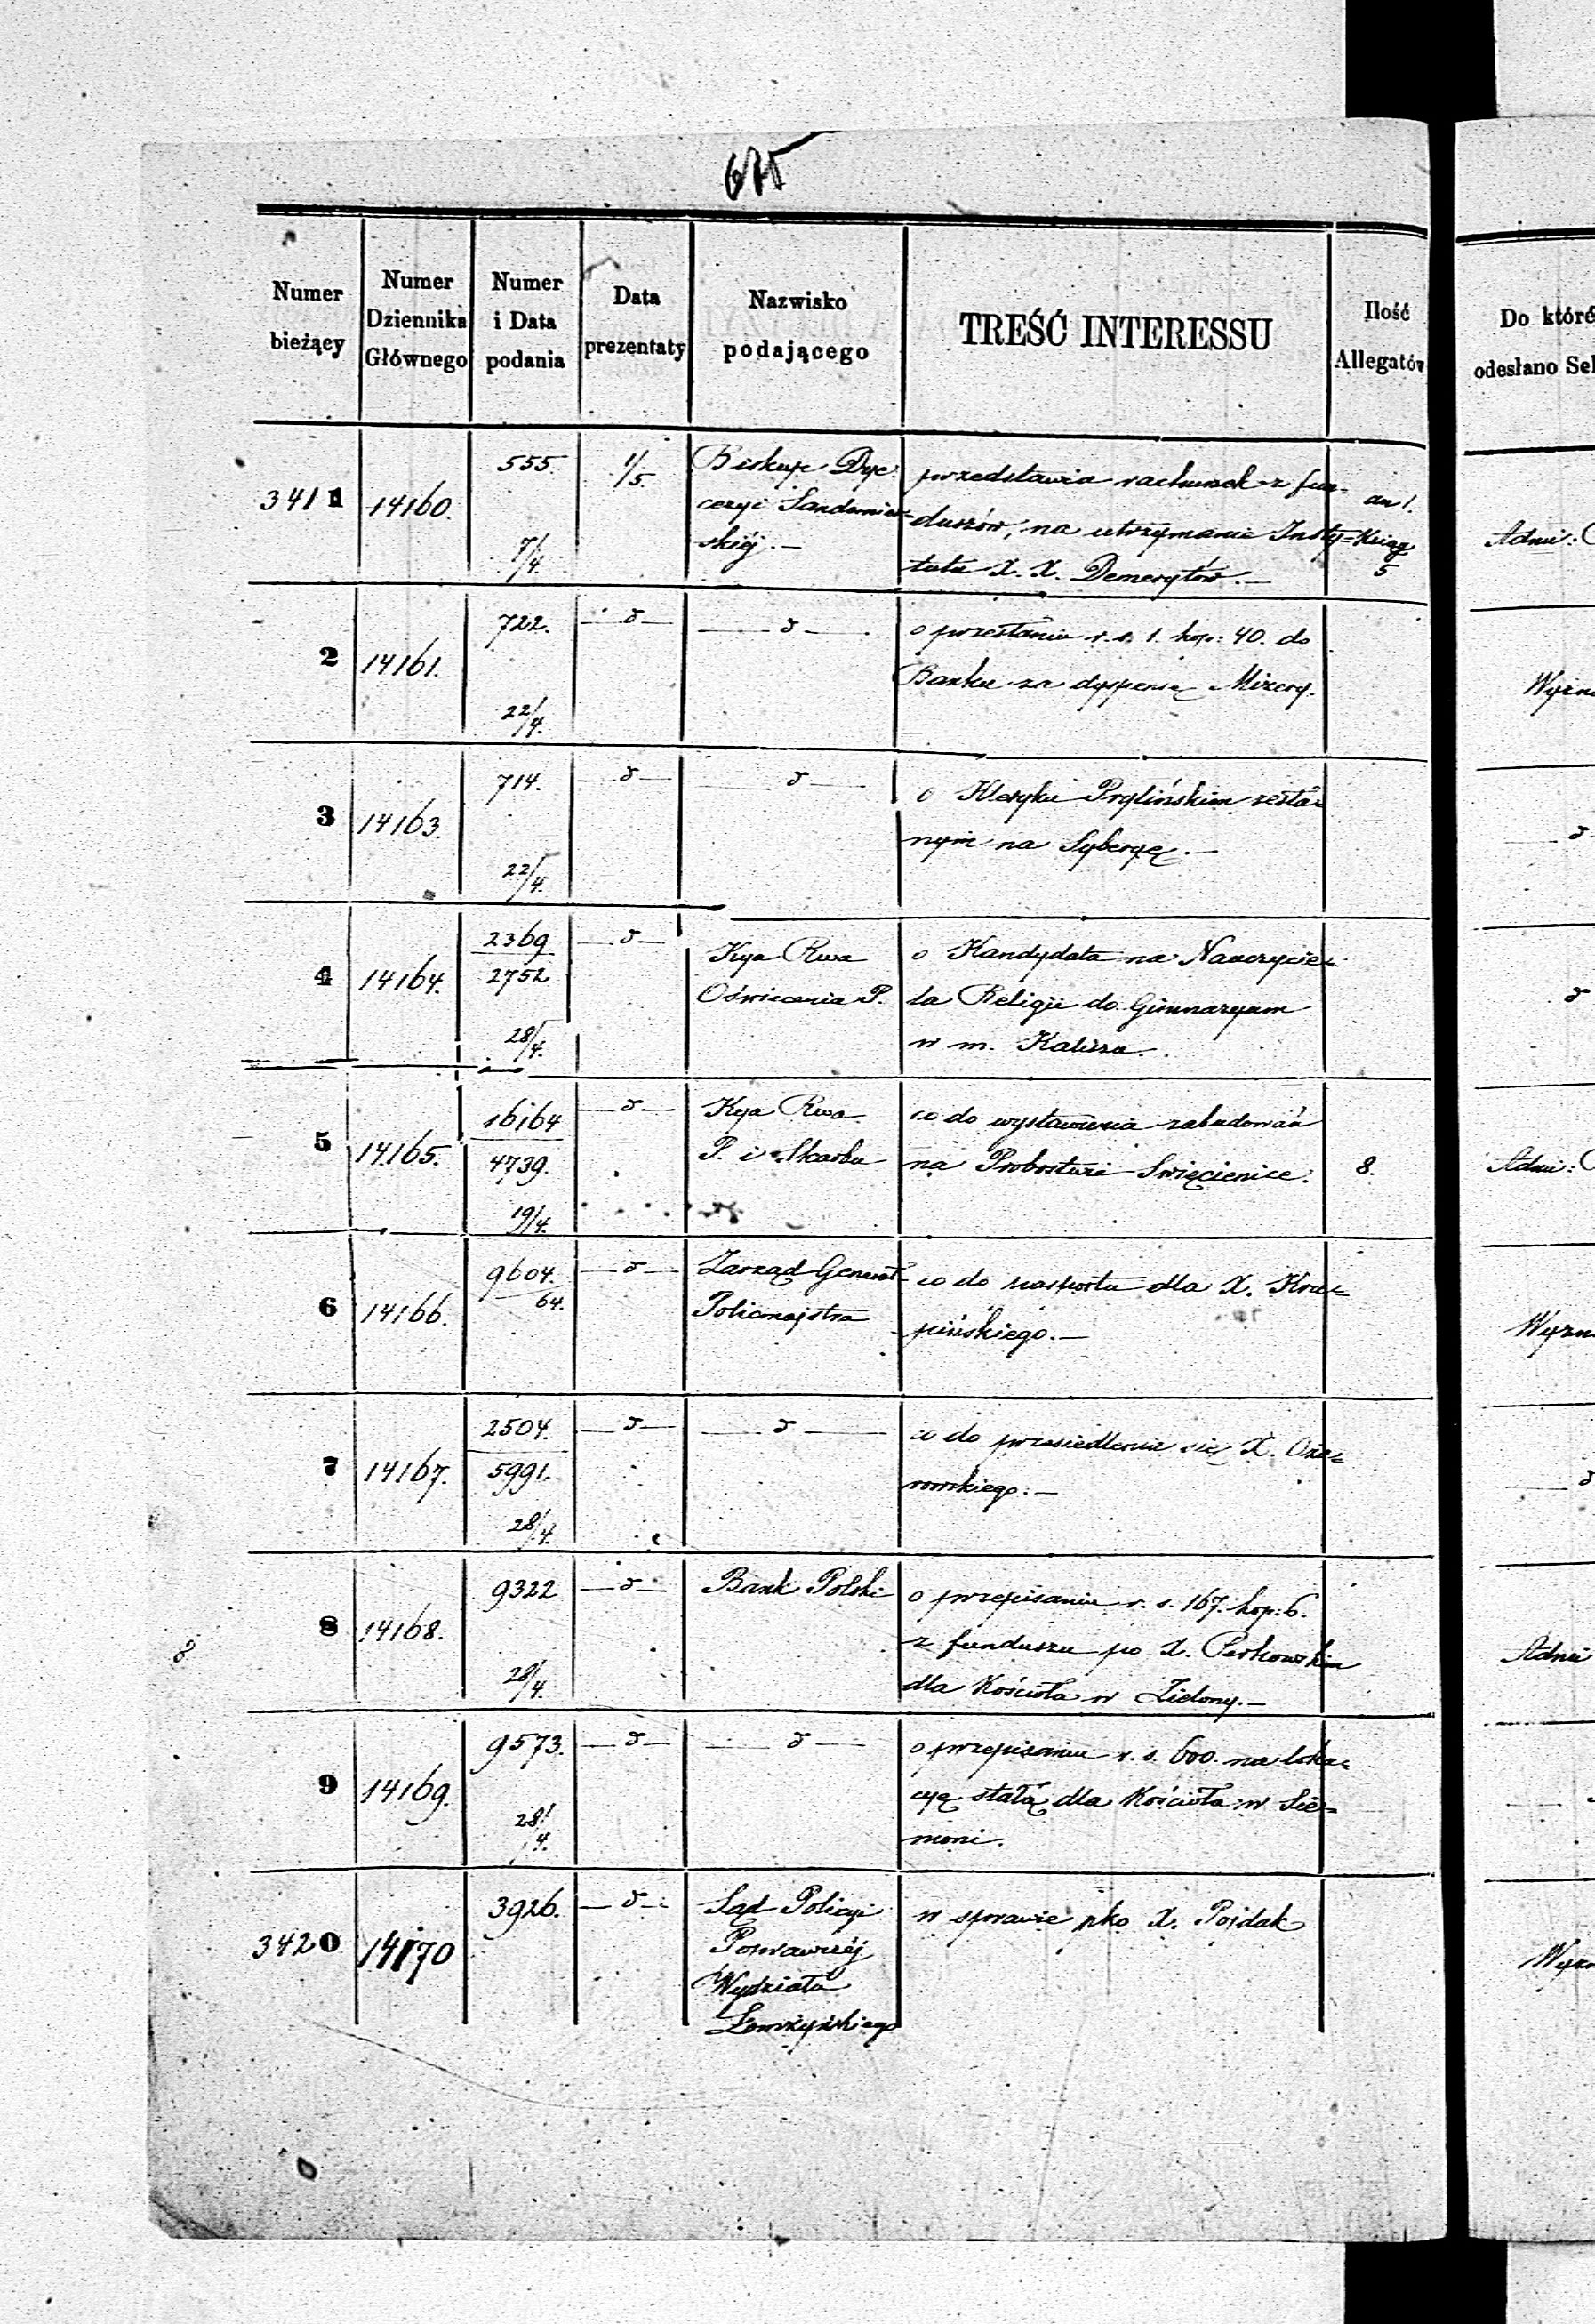 675
Numer bieżący
Numer Dziennika Głównego
Numer i Data podania
Data prezentaty
Nazwisko podającego
TREŚĆ INTERESSU
Ilość Allegatów
Do któré
odesłano Sek
3411 14160. 555. 7/4. 1/5.
Biskup Dye:
cezyi Sandomier=
skiéj.—
przedstawia rachunek z fun=
duszów, na utrzymanie Insty=
tutu X. X. Demerytów.—
an 1.
Ksiąg
5
Admi:
2 14161. 722. 22/4. —d— —d—
o przesłaniu r. s. 1. kop: 40. do
Banku za dyspensę
Wyzn
3 14163. 714. 22/4. —d— —d—
o Kleryku Prylińskim zesła=
nym na Syberyę.—
d
4 14164. 2369 2752 28/4. —d—
Kya Rwa
Oświecenia P.
o Kandydata na Nauczycie=
la Religii do Gimnazyum
w m. Kalisza.
d
5 14165. 16164 4739. 19/4. —d—
Kya Rwa
P. i Skarbu
co do wystawienia zabudowań
na Probostwie Swięcienice.
8.
Admi:
6 14166. 9604. 64. —d—
Zarząd Generał
Policmajstra
co do paszportu dla X. Kru=
pińskiego.—
Wyzn
7 14167. 2504. 5991. 28/4. —d— —d—
co do przesiedlenia się X. Oża=
rowskiego.—
d
8 14168. 9322 28/4. —d—
Bank Polski
o przepisaniu r. s. 167. kop: 6.
z funduszu po X. Perkowskim
dla Kościoła w Zielony.—
Admi
9 14169. 9573. 28/4. —d— —d—
o przepisaniu r. s. 600. na loka=
cyę stałą dla Kościoła w Sie=
moni.
3420 14170 3926. —d—
Sąd Policyi
Poprawczéj
Wydziału
Łomżyńskiego
w sprawie pko X. Pojdak
Wyzn